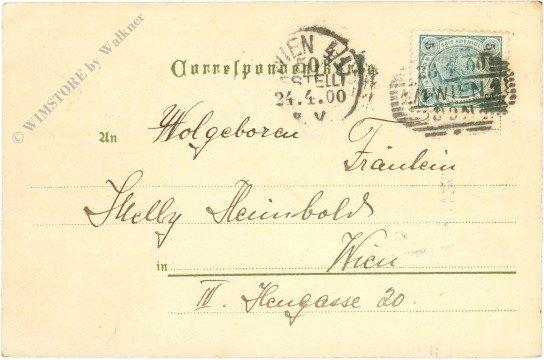 © WIMSTORE by Walkner
Correspondenzkarte
WIEN 4/1
BESTELLT
24.4.00
5 5
WIEN
An Wolgeboren
Fräulein
Nelly Heimbold
in Wien
IV. Heugasse 20.